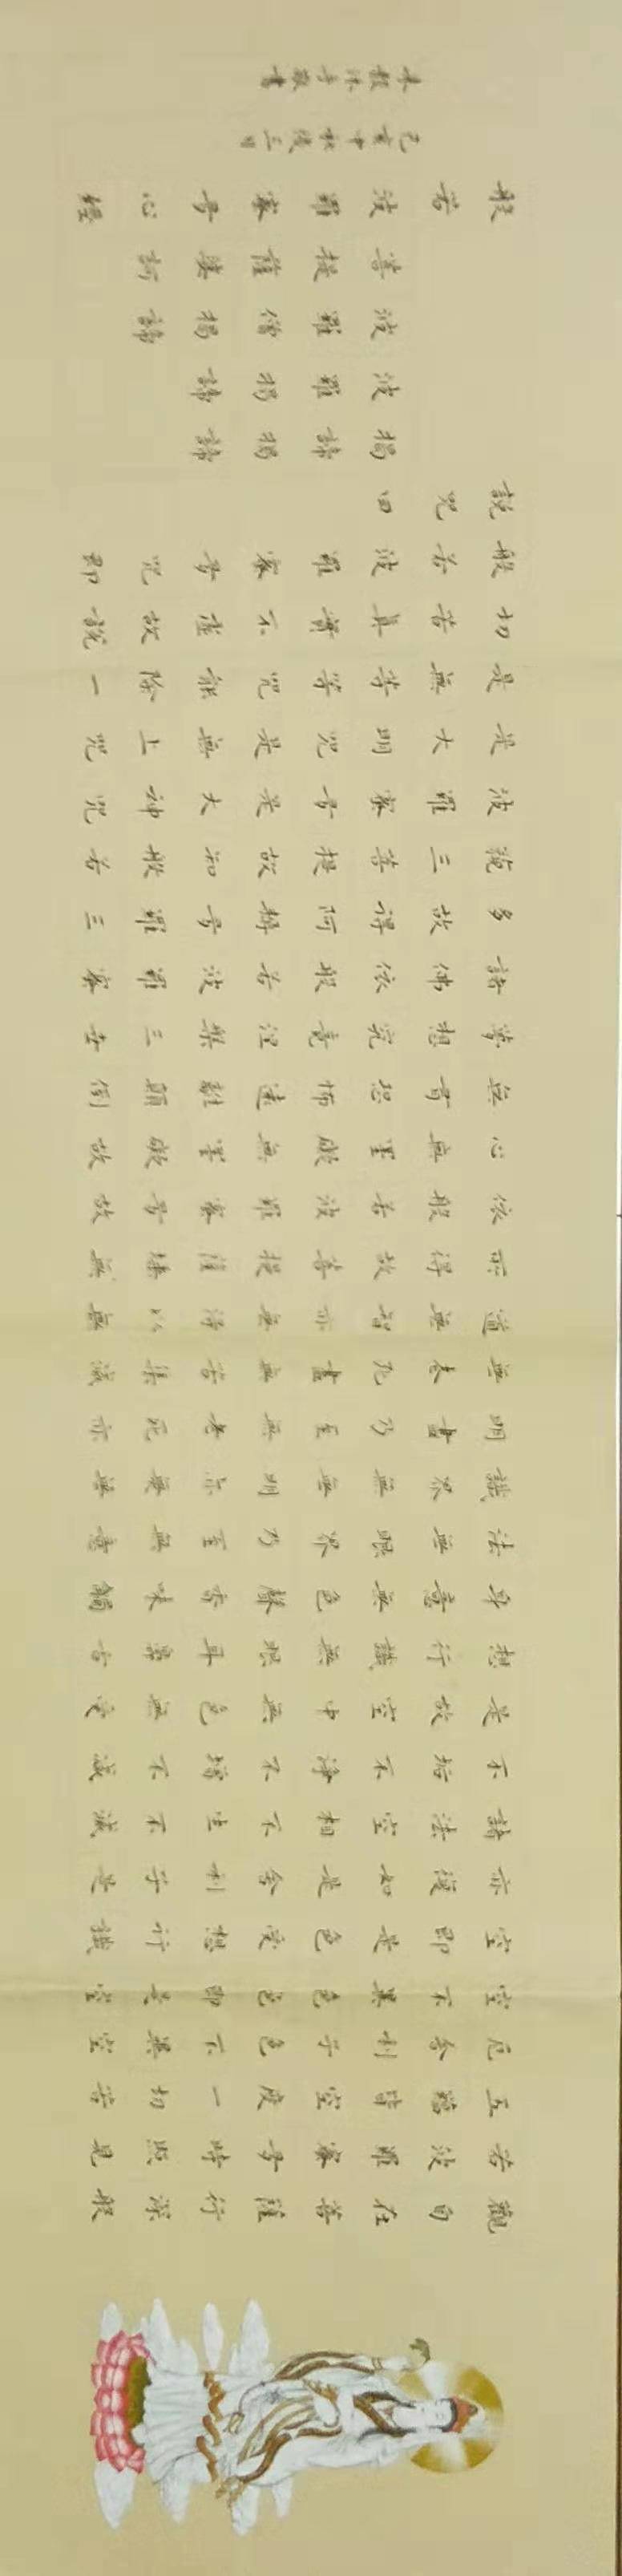 觀自在菩薩行深般
若波羅蜜多時照見
五蘊皆空度一切苦
厄舍利子色不異空
空不異色色即是空
空即是色受想行識
亦復如是舍利子是
諸法空相不生不滅
不垢不淨不增不減
是故空中無色無受
想行識無眼耳鼻舌
身意無色聲香味觸
法無眼界乃至無意
識界無無明亦無無
明盡乃至無老死亦
無老死盡無苦集滅
道無智亦無得以無
所得故菩提薩埵
依般若波羅蜜多故
心無罣礙無罣礙故
無有恐怖遠離顛倒
夢想究竟涅槃三世
諸佛依般若波羅蜜
多故得阿耨多羅三
藐三菩提故知般若
波羅蜜多是大神咒
是大明咒是無上咒
是無等等咒能除一
切苦真實不虛故說
般若波羅蜜多咒即
說咒曰
揭諦揭諦
波羅揭諦
波羅僧揭諦
菩提薩婆訶
般若波羅蜜多心經
己亥中秋後三日
沐手敬書